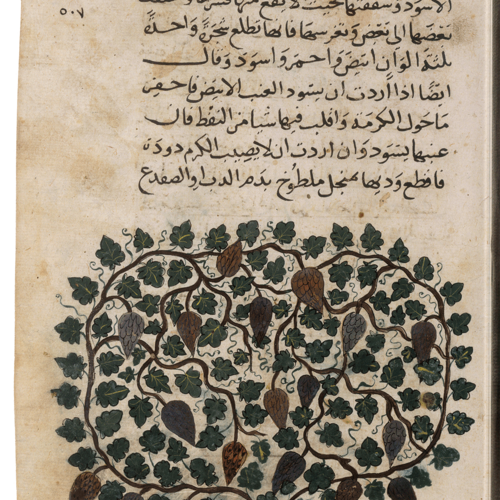 ٥٠٧
الاسود وشققتها بحيث لا يقع منها
بعضها الى بعض وتغرسها فانها تطلع شجرة واحدة
بثلثة الوان ابيض واحمر واسود وقال
ايضا اذا اردت ان يسود العنب الابيض فاحفر
ما حول الكرمة واقلب فيها شيا من النفط فان
عنبها يسود وان اردت ان لا يصيب الكرم دودة
فاقطع وديها بمنجل ملطوخ بدم الدب والضفدع